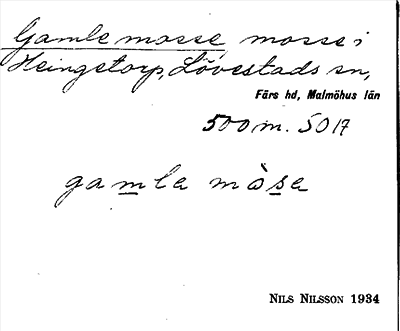 Gamle mosse mosse i
Heingetorp, Lövestads sn,
Färs hd, Malmöhus län
500 m. SO 17
gamla mòsa
NILS NILSSON 1934